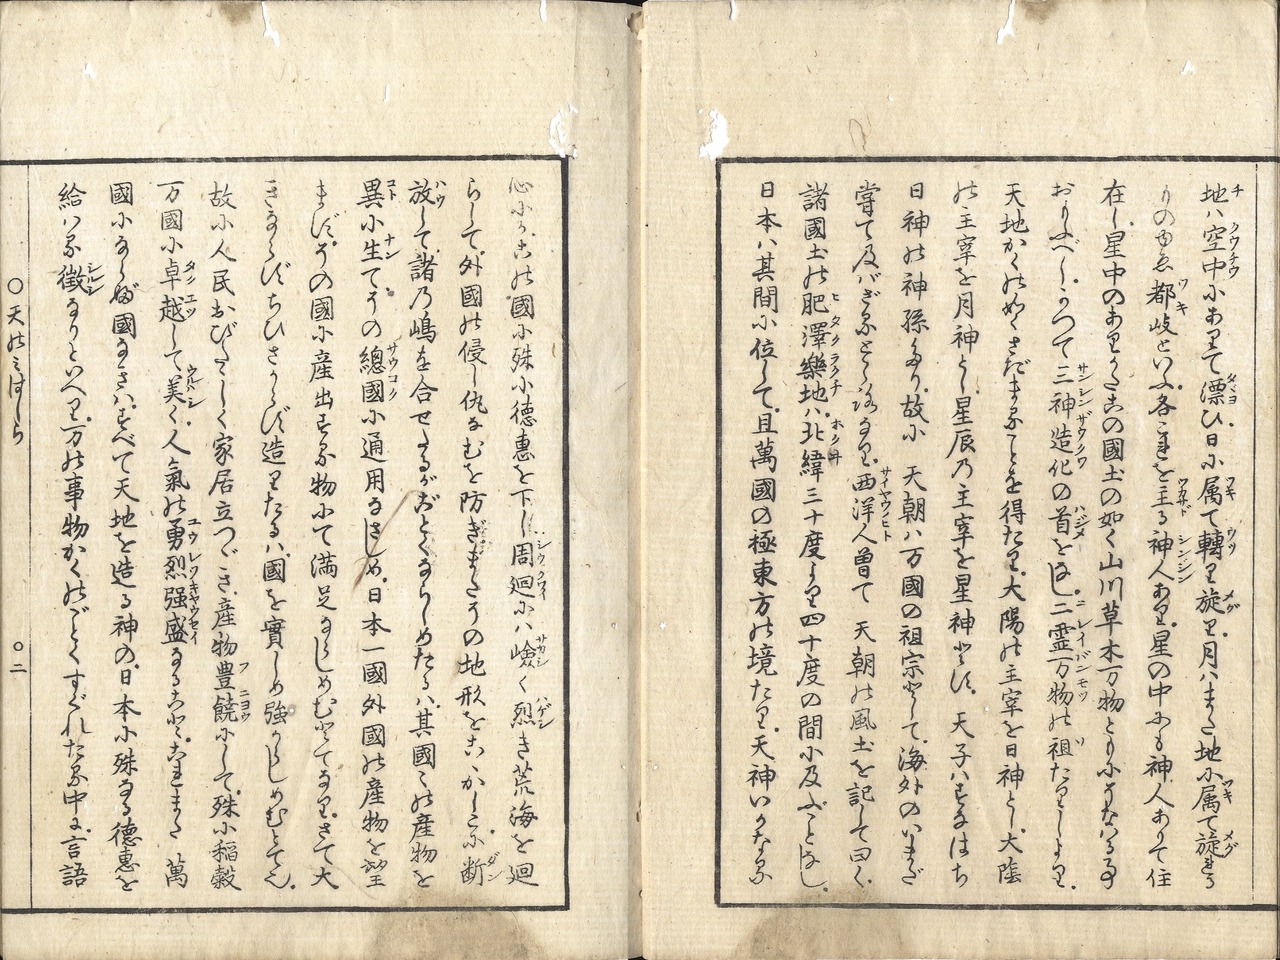 地ハ空中にありて漂ひ日に属て轉り旋り月ハまた地に属て旋れる
ものゆゑ都岐といふ各これを主る神人あり星の中にも神人ありて住
在し星中のありかたこの國土の如く山川草木万物ともにそなハる事
おもふべしかつて三神造化の首をなし二霊万物の祖たりしより
天地かくの如くさだまることを得たり大陽の主宰を日神とし大陰
の主宰を月神とし星辰乃主宰を星神とす天子ハすなはち
日神の神孫なり故に天朝ハ万国の祖宗として海外のいまだ
嘗て及バざるところなり西洋人曽て天朝の風土を記して曰く
諸國土の肥澤樂地ハ北緯三十度より四十度の間に及ぶことなし
日本ハ其間に位して且萬國の極東方の境たり天神いかなる
心にかこの國に殊に徳恵を下し周廻にハ嶮く烈き荒海を廻
らして外國の侵し仇なむを防ぎまたその地形をこゝかしこに断
放して諸乃嶋を合せたるがごとくならしめたるハ其國々の産物を
異に生てその總國に通用なさしめ日本一國外國の産物を望
まずその國に産出する物にて満足ならしめむとてなりさて大
きならずちひさからず造りたるハ國を實しめ強からしめむとてなり
故に人民おびたゝしく家居立つゞき産物豊饒にして殊に稲穀
万國に卓越して美く人氣の勇烈强盛なることこれまた萬
國にならぶ國なきハすべて天地を造る神の日本に殊なる徳恵を
給ハる徴なりといへり万の事物かくのごとくすぐれたる中に言語
○天のみはしら
○二